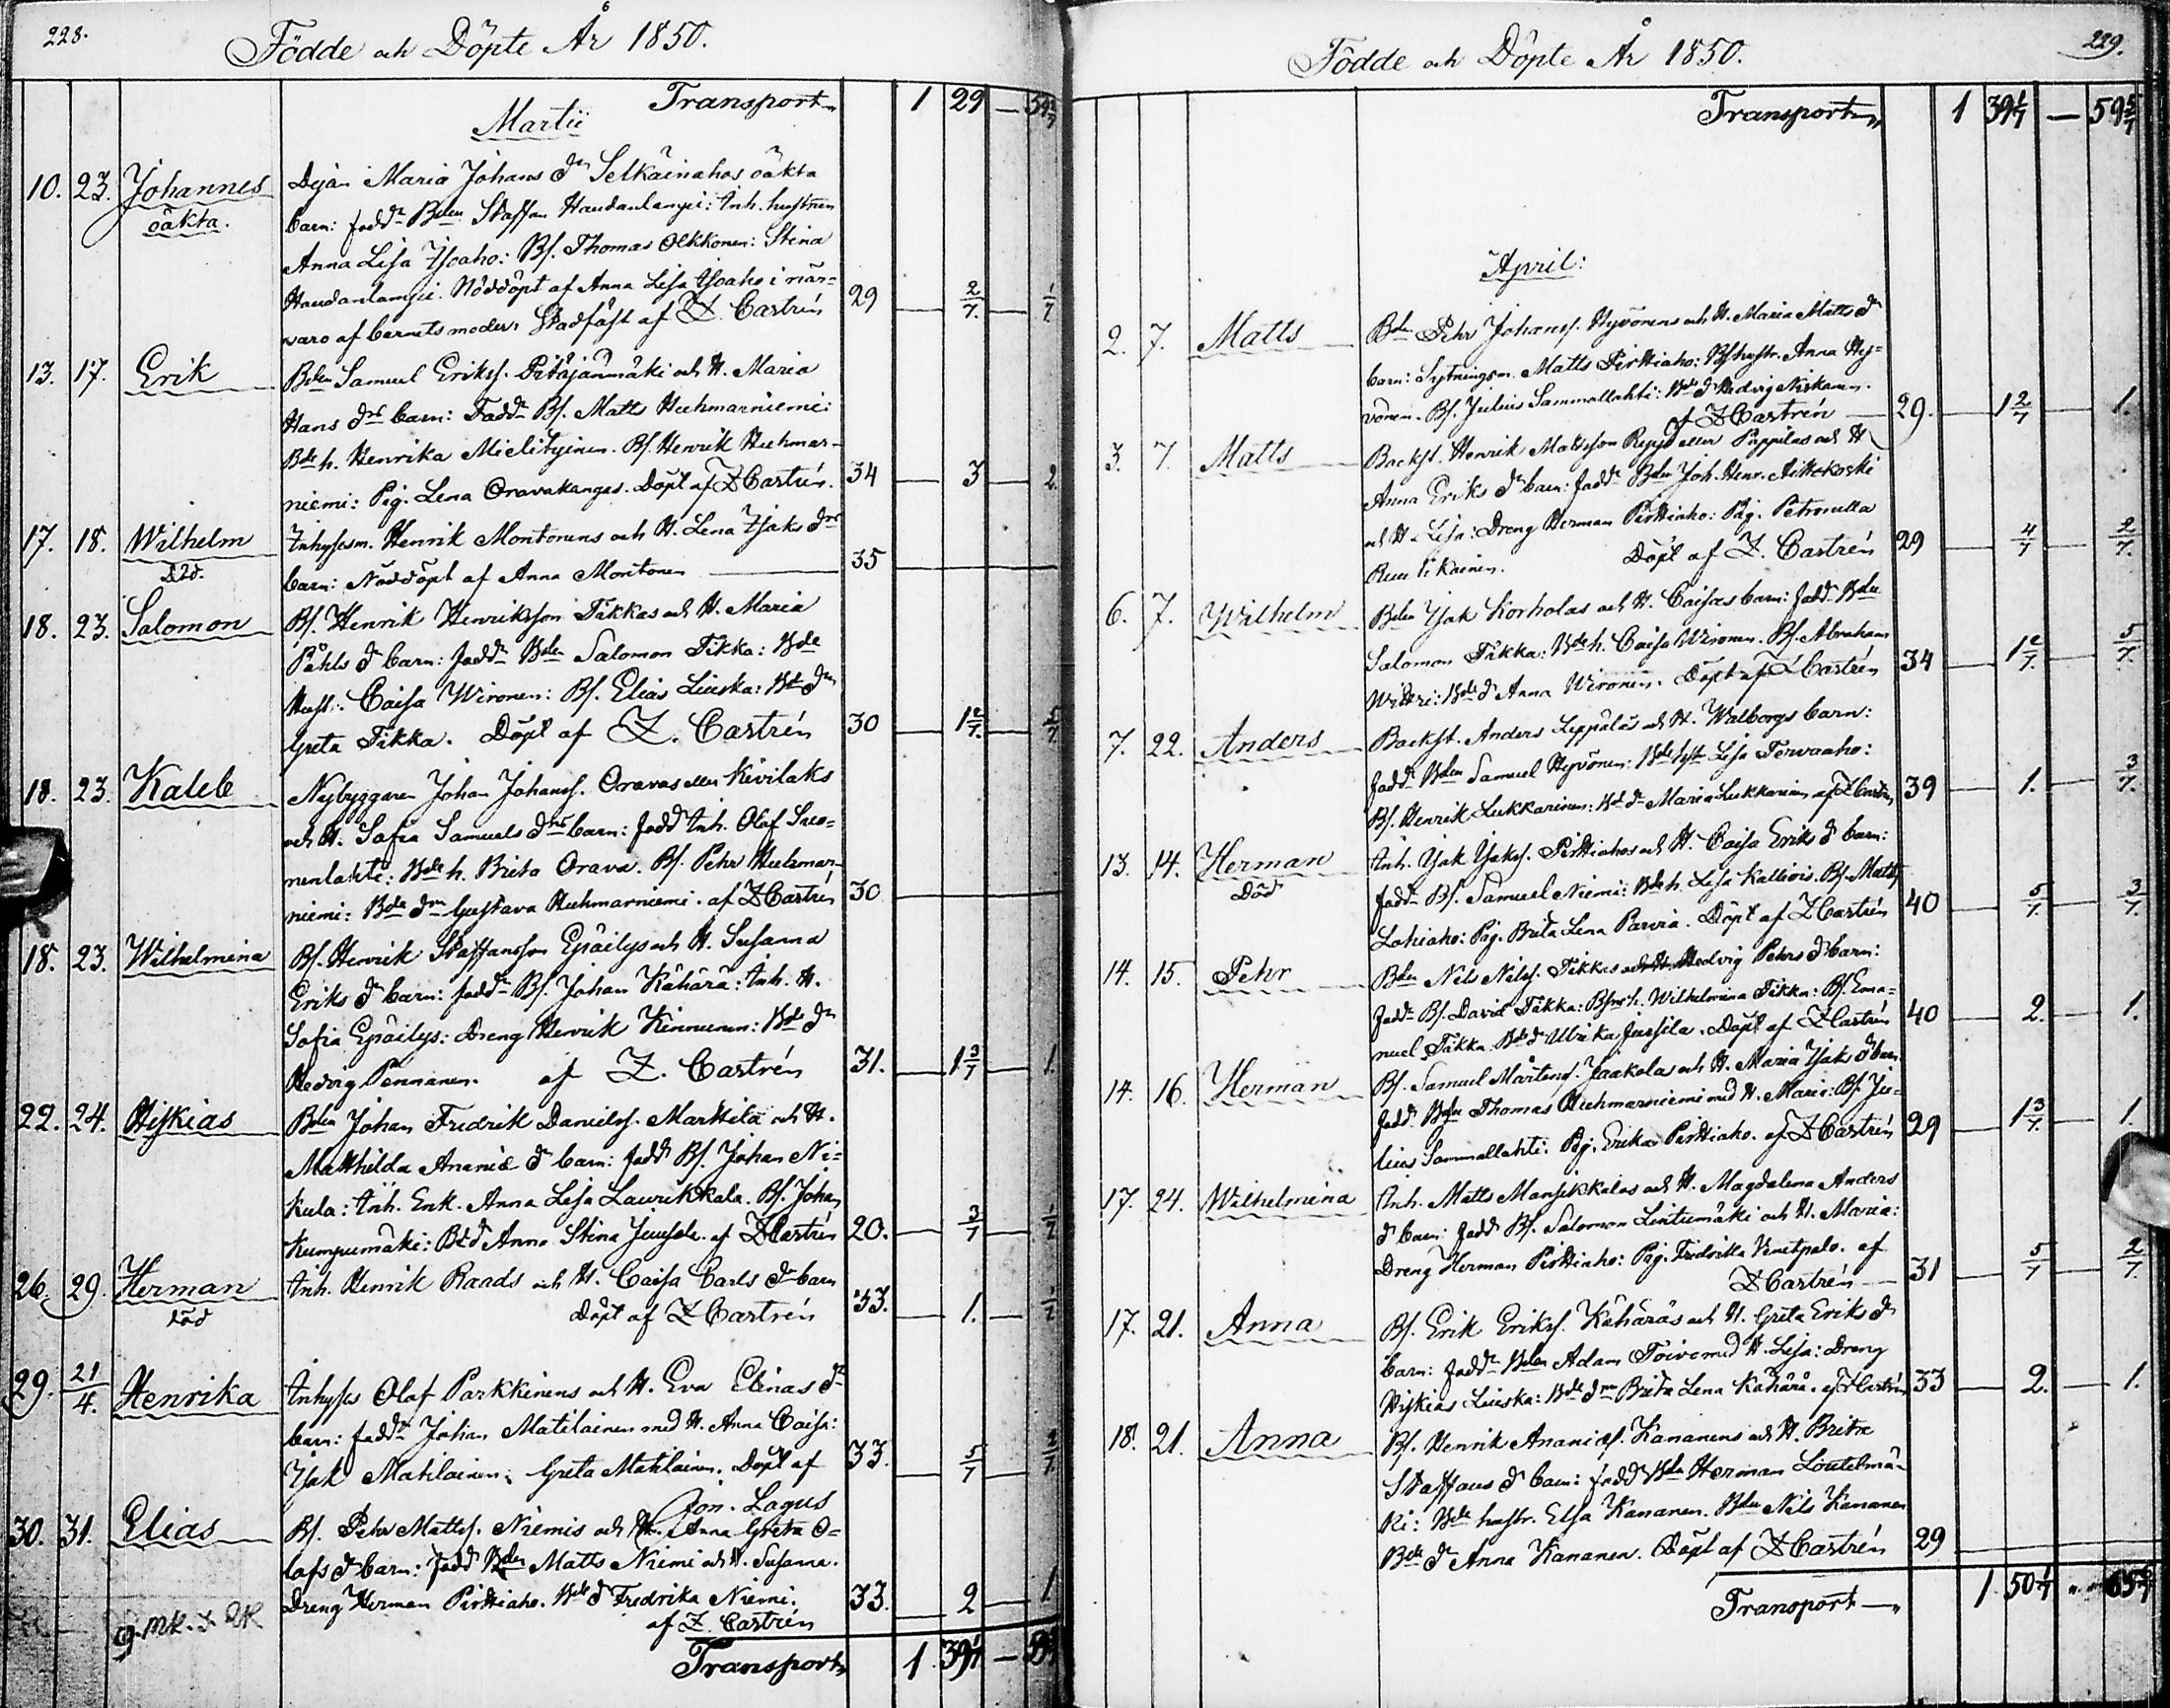 228.
Födde och Döpte År 1850.
Transport 1 29 —
Martii
10. 23. Johannes Dejan Maria Johans dr Selkäinahos oäkta
oäkta. barn: fadd: Bden Staffan Haudanlampi: Inh. hustrun
Anna Lisa Isoaho: Bs. Thomas Olkkonen: Stina
Haudanlampi. Nöddöpt af Anna Lisa Isoaho i när=
varo af barnets moder: Stadfäst af Z. Castrén 29 — 2/7. — 1/7.
13. 17. Erik Bden Samuel Erikss. Pitäjänmäki och H. Maria
Hans drs barn: Fadd: Bs. Matts Huhmarniemi:
Bde h. Henrika Mielityinen. Bs. Henrik Huhmar-
niemi: Pig. Lena Oravakangas. Döpt af Z Castrén. 34 — 3 — 2.
17. 18. Wilhelm Inhysesm. Henrik Montonens och H. Lena Isaks drs
Död. barn: Nöddöpt af Anna Montonen — 35
18. 23. Salomon Bs. Henrik Henriksson Tikkas och H. Maria
Påhls dr barn: fadd: Bden Salomon Tikka: Bde
Hust: Caisa Wironen: Bs. Elias Liuska: Bde dr
Greta Tikka. Döpt af Z. Castrén 30 — 1 2/7. — 5/7.
18. 23. Kaleb Nybyggaren Johan Johanss. Oravas eller Kivilaks
och H. Sofia Samuels drs barn: fadd Inh. Olaf Suo=
nenlahti: Bde h. Brita Orava. Bs. Pehr Huhmar-
niemi: Bde dr Gustava Huhmarniemi. af Z Castrén 30
18. 23. Wilhelmina Bs. Henrik Staffansson Epäilys och H. Susanna
Eriks dr barn: fadd: Bs. Johan Kähärä: Inh. H.
Sofia Epäilys: Dreng Henrik Kinnunen: Bde dr
Hedvig Pennanen. af Z. Castrén 31. — 1 3/7 — 1.
22. 24. Hiskias Bden Johan Fredrik Danielss. Marttila och H.
Mathilda Ananiæ dr barn: fadd Bs. Johan Ni=
kula: Inh. Enk. Anna Lisa Laurikkala. Bs. Johan
Kumpumäki: Bde d Anna Stina Jussila. af Z Castrén 20. — 3/7 — 1/7
26. 29. Herman Inh. Henrik Raads och H. Caisa Carls dr barn
död Döpt af Z Castrén 33. — 1. —
29. 21/4. Henrika Inhyses Olaf Parkkinens och H. Eva Elinas dr
barn: fadd: Johan Matilainen med H. Anna Caisa:
Isak Matilainen: Greta Matilainen. Döpt af 33. — 5/7 — 2/7.
Jon. Lagus
30. 31. Elias Bs. Pehr Mattss. Niemis och H. Anna Greta O=
lafs dr barn: Fadd Bden Matts Niemi och H. Susanna.
Dreng Herman Pirttiaho. Bde d Fredrika Niemi. 33. — 2 — 1
af Z. Castrén
Transport 1. 39 1/7 —
229.
Födde och Döpte År 1850.
Transport 1 39 1/7 — 59 5/7
April:
2. 7. Matts Bden Pehr Johanss. Hyvönens och H. Maria Matts dr
barn: Sytningsm. Matts Pirttiaho: Bs. hustr. Anna Hy=
vönen. Bs. Julius Sammallahti: Bde dr Hedvig Niskanen.
af Z Castrén — 29. — 1 2/7 — 1.
3. 7. Matts Backst. Henrik Mattsson Repp eller Pappilas och H
Anna Eriks dr barn: fadd: Bden Joh. Henr. Aittokoski
och H. Lisa: Dreng Herman Pirttiaho: Pig. Petronella
Ruutikainen. Döpt af Z. Castrén 29 — 4/7 — 2/7.
6. 7. Wilhelm Bden Isak Korholas och H. Caisas barn: fadd: Bden
Salomon Tikka: Bde h. Caisa Wironen. Bs. Abraham
Wiittri: Bde d Anna Wironen. Döpt af Z Castrén 34 — 1 2/7. — 5/7.
7. 22. Anders Backst. Anders Leppäläs och H. Walborgs barn:
fadd: Bden Samuel Hyvönen: Bde hustr Lisa Tervaaho:
Bs. Henrik Lukkarinen: Bde dr Maria Lukkarinen af Z Castrén 39 — 1. — 3/7.
13. 14. Herman Inh. Isak Isakss. Pirttiahos och H. Caisa Eriks d barn:
Död fadd: Bs. Samuel Niemi: Bde h. Lisa Kallioi. Bs. Matts
Lahiaho: Pig. Brita Lena Parvia. Döpt af Z Castrén 40 — 5/7. — 3/7.
14. 15. Pehr Bden Nils Nilss. Tikkas och H. Hedvig Pehrs dr barn:
Fadd: Bs. David Tikka: Bsns h. Wilhelmina Tikka: Bs. Ema=
nuel Tikka. Bde d Ulrika Jussila. Döpt af Z Castrén 40 — 2. — 1.
14. 16. Herman Bs. Samuel Mårtens. Jaakolas och H. Maria Isaks d barn
fadd: Bden Thomas Huhmarniemi med H. Maria: Bs. Ju=
lius Sammallahti. Pig. Erika Pirttiaho. af Z Castrén 29 — 1 3/7. — 1.
17. 24. Wilhelmina Inh. Matts Mansikkalas och H. Magdalena Anders
d barn: fadd Bs. Salomon Lintumäki och H. Maria:
Dreng Herman Pirttiaho: Pig. Fredrika Venetpalo. af
Z Castrén — 31 — 5/7 — 2/7.
17. 21. Anna Bs. Erik Erikss. Kähäräs och H. Greta Eriks dr
barn: fadd: Bden Adam Toive med H. Lisa: Dreng
Hiskias Liuska: Bde dr Brita Lena Kähärä. af Z Castrén 33 — 2. — 1.
18. 21. Anna Bs. Henrik Ananiæs. Kananens och H. Brita
Staffans dr barn: fadd Bden Herman Loutelmä-
ki: Bde hustr. Elsa Kananen. Bden Nils Kananen
Bde dr Anna Kananen. Döpt af Z Castrén 29
Transport — 1. 50 1/7